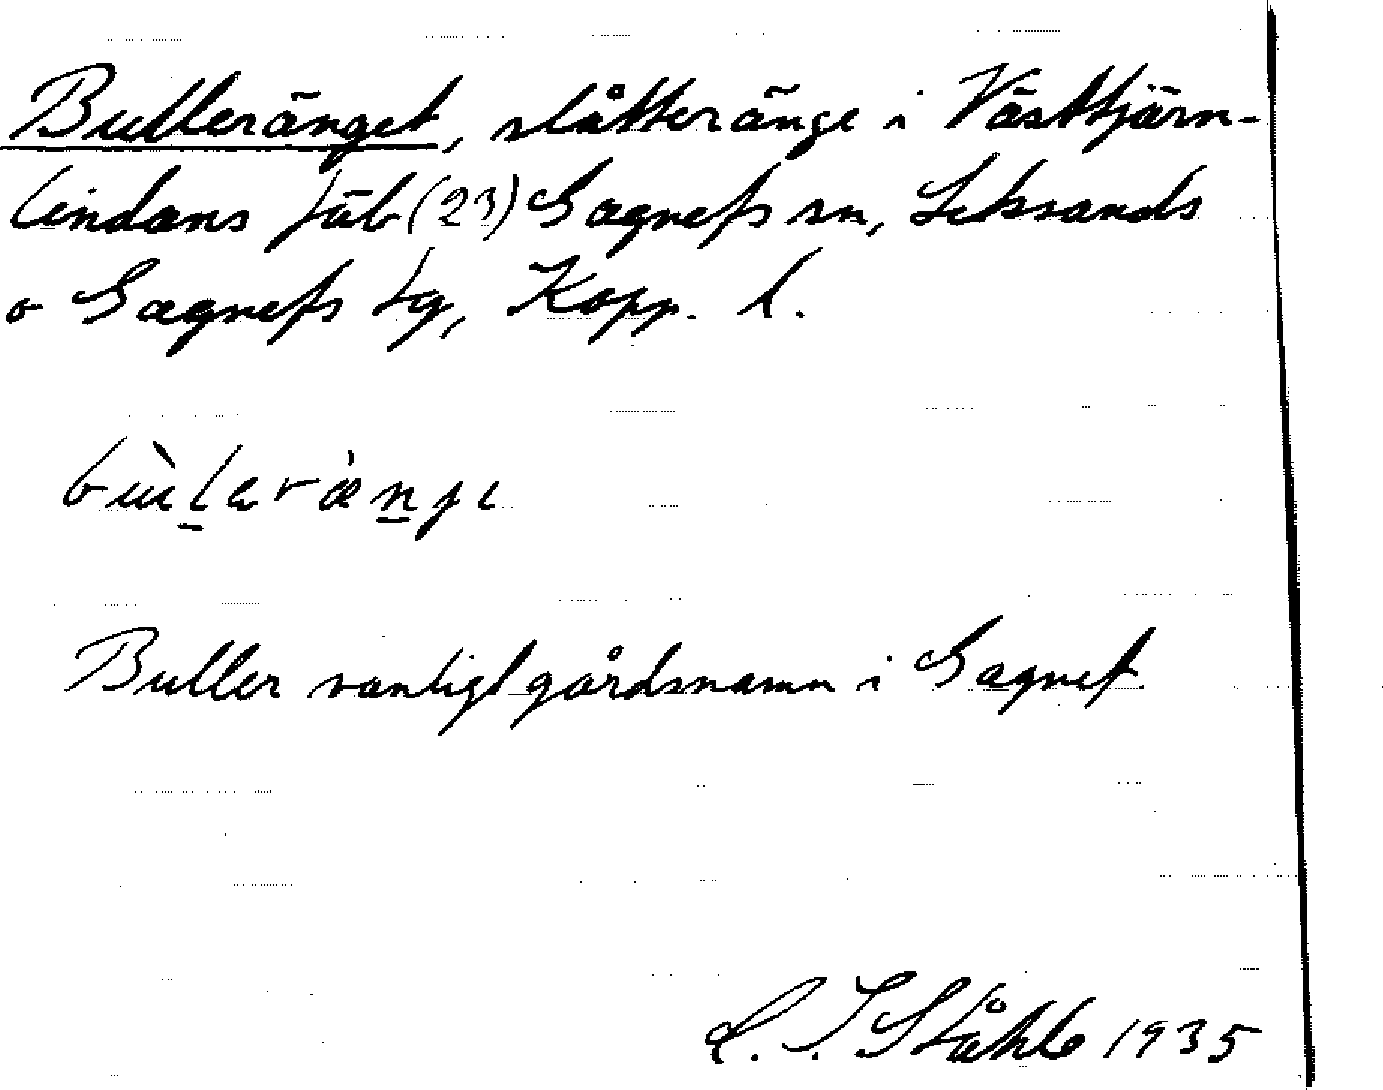 Bulleränget, slåtteränge i Västtjärn-
lindans fäb (23) Gagnefs sn, Leksands
o Gagnefs tg, Kopp. l.
Buller vanligt gårdsnamn i Gagnef.
C. I. Ståhle 1935